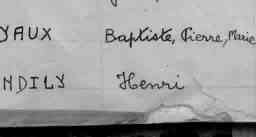 YAUX Baptiste, Pierre, Marie
NDILY Henri